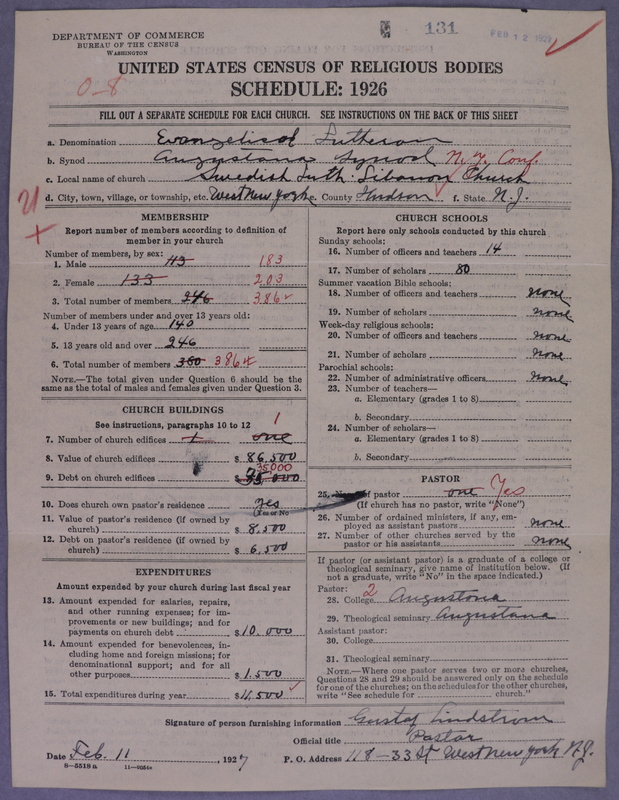 131
FEB 12 1927
DEPARTMENT OF COMMERCE
BUREAU OF THE CENSUS
WASHINGTON
UNITED STATES CENSUS OF RELIGIOUS BODIES
0-8
SCHEDULE: 1926
FILL OUT A SEPARATE SCHEDULE FOR EACH CHURCH. SEE INSTRUCTIONS ON THE BACK OF THIS SHEET
a. Denomination Evangelical Lutheran
b. Synod Augustana Synod N.Y. Conf.
c. Local name of church Swedish Luth. Libanon Church
d. City, town, village, or township, etc. West New York e. County Hudson f. State N.J.
MEMBERSHIP
Report number of members according to definition of
member in your church
Number of members, by sex:
1. Male 113 183
2. Female 133 203
3. Total number of members 246 386
Number of members under and over 13 years old:
4. Under 13 years of age 140
5. 13 years old and over 246
6. Total number of members 386
NOTE.—The total given under Question 6 should be the
same as the total of males and females given under Question 3.
CHURCH BUILDINGS
See instructions, paragraphs 10 to 12
1
7. Number of church edifices 1 one
8. Value of church edifices $ 86,500
35000
9. Debt on church edifices $ 35,000
10. Does church own pastor's residence yes
(Yes or No)
11. Value of pastor's residence (if owned by
church) $ 8,500
12. Debt on pastor's residence (if owned by
church) $ 6,500
EXPENDITURES
Amount expended by your church during last fiscal year
13. Amount expended for salaries, repairs,
and other running expenses; for im-
provements or new buildings; and for
payments on church debt $ 10,000
14. Amount expended for benevolences, in-
cluding home and foreign missions; for
denominational support; and for all
other purposes $ 1,500
15. Total expenditures during year $ 11,500
CHURCH SCHOOLS
Report here only schools conducted by this church
Sunday schools:
16. Number of officers and teachers 14
17. Number of scholars 80
Summer vacation Bible schools:
18. Number of officers and teachers none
19. Number of scholars none
Week-day religious schools:
20. Number of officers and teachers none
21. Number of scholars none
Parochial schools:
22. Number of administrative officers none
23. Number of teachers—
a. Elementary (grades 1 to 8)
b. Secondary
24. Number of scholars—
a. Elementary (grades 1 to 8)
b. Secondary
PASTOR
25. of pastor one Yes
(If church has no pastor, write "None")
26. Number of ordained ministers, if any, em-
ployed as assistant pastors none
27. Number of other churches served by the
pastor or his assistants none
If pastor (or assistant pastor) is a graduate of a college or
theological seminary, give name of institution below. (If
not a graduate, write "No" in the space indicated.)
Pastor: 2
28. College Augustana
29. Theological seminary Augustana
Assistant pastor:
30. College
31. Theological seminary
NOTE.—Where one pastor serves two or more churches,
Questions 28 and 29 should be answered only on the schedule
for one of the churches; on the schedules for the other churches,
write "See schedule for church."
Signature of person furnishing information Gustof Lindstrom
Official title Pastor
Date Feb. 11, 1927 P. O. Address 118-33 St West New York N.J.
8-5518 a